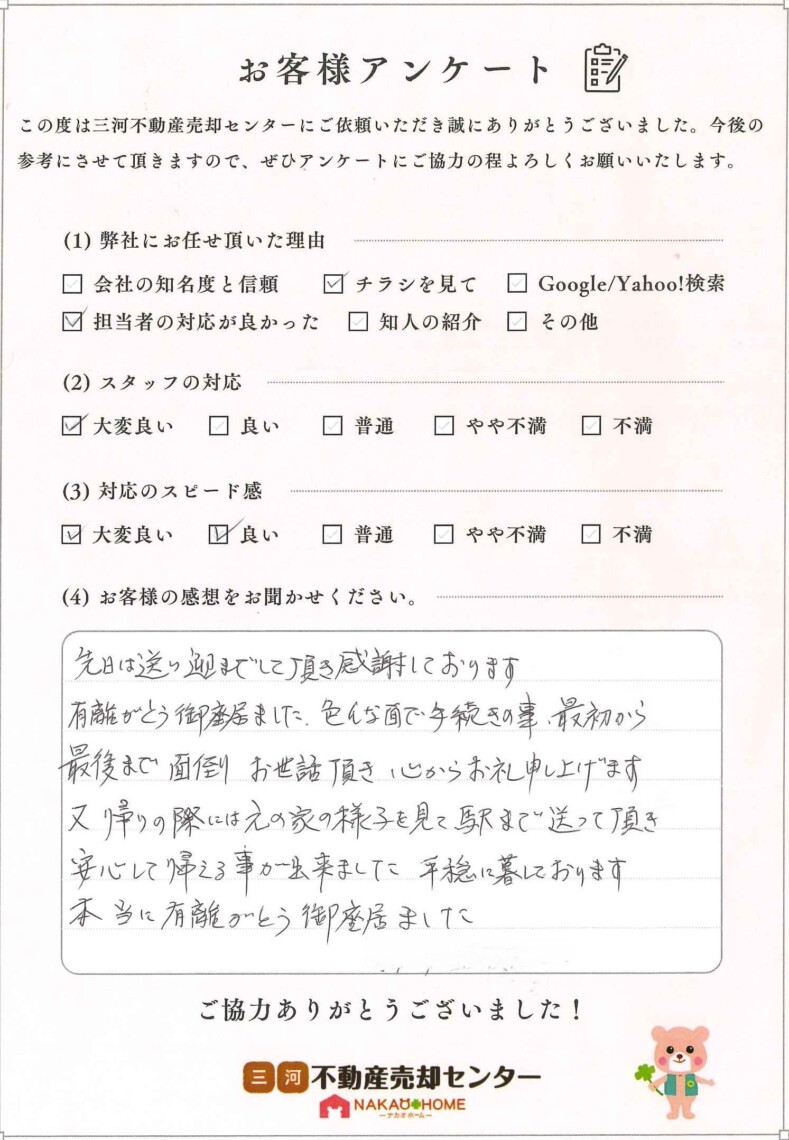 お客様アンケート
この度は三河不動産売却センターにご依頼いただき誠にありがとうございました。今後の
参考にさせて頂きますので、ぜひアンケートにご協力の程よろしくお願いいたします。
(1) 弊社にお任せ頂いた理由
会社の知名度と信頼 チラシを見て Google/Yahoo!検索
担当者の対応が良かった 知人の紹介 その他
(2) スタッフの対応
大変良い 良い 普通 やや不満 不満
(3) 対応のスピード感
大変良い 良い 普通 やや不満 不満
(4) お客様の感想をお聞かせください。
先日は送り迎までして頂き感謝しております
有離がとう御座居ました、色んな面で手続きの事、最初から
最後まで 面倒り お世話頂き 心からお礼申し上げます
又 帰りの際には元の家の様子を見て駅まで送って頂き
安心して帰える事が出来ました 平穏に暮しております
本当に有離がとう御座居ました
ご協力ありがとうございました！
三河不動産売却センター
NAKAO HOME
ーナカオホームー